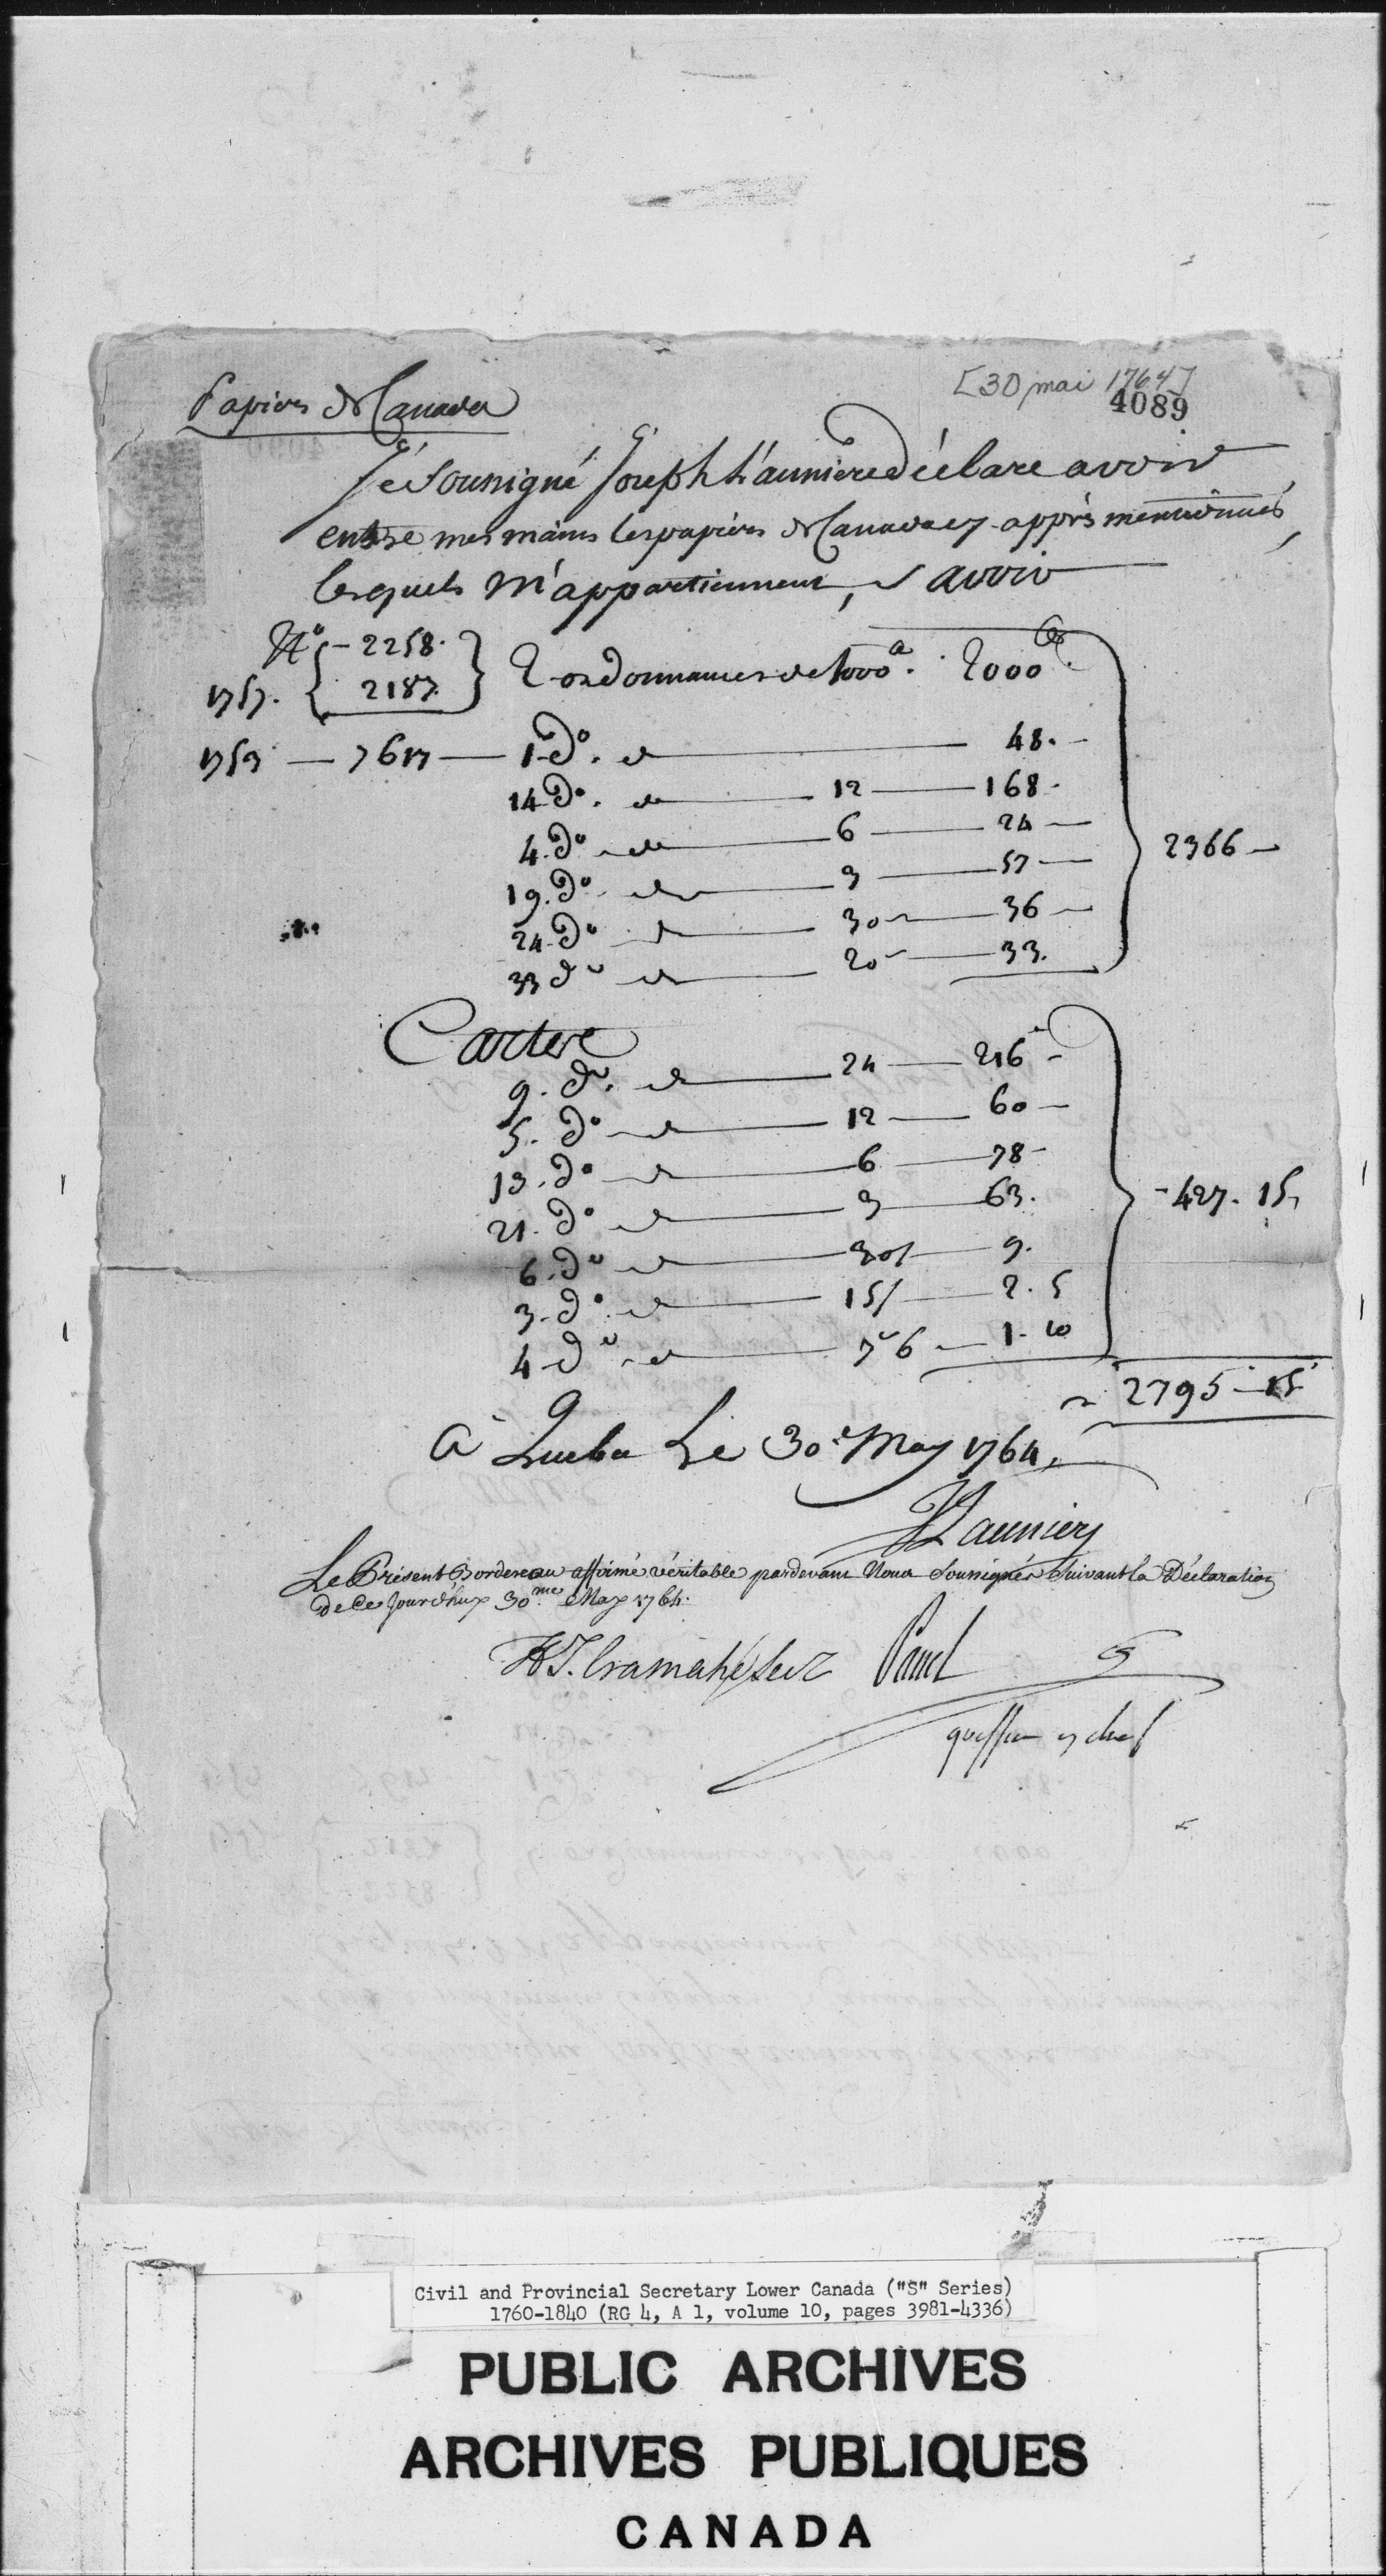 [30 mai 1764]
4089
Papiers de Canada
Je Sousigné Joseph Launiere déclare avoir
entre mes mains les papiers de Canada cy apprés mentionnés
lesquels m'appartiennent, savoir
No - 2258.
1757. 2187. 2 ordonnances de 1000 2000
1753 — 7617 — 1 do. de — 48. -
14 do. de — 12 — 168 -
4. do de — 6 — 24 —
19. do de — 3 — 57 —
2366 —
24. do de — 30s — 36 —
33 do de — 20s — 33.
Cartere
9. do. de — 24 — 216 -
5. do de — 12 — 60 —
13. do de — 6 — 78 -
21. do de — 3 — 63.
- 427. 15
6. do de — 30/ — 9.
3. do de — 15/ — 2. 5
4 do de — 7s 6 — 1. 10
2795 - 15
à Quebec Le 30e May 1764.
Launiery
Le Présent Bordereau affirmé véritable pardevant Nous Sousignés Suivant la Déclaration
de Ce Jourd'huy 30me May 1764.
H T. Cramahé Panet
greffier en chef
Civil and Provincial Secretary Lower Canada ("S" Series)
1760-1840 (RG 4, A 1, volume 10, pages 3981-4336)
PUBLIC ARCHIVES
ARCHIVES PUBLIQUES
CANADA